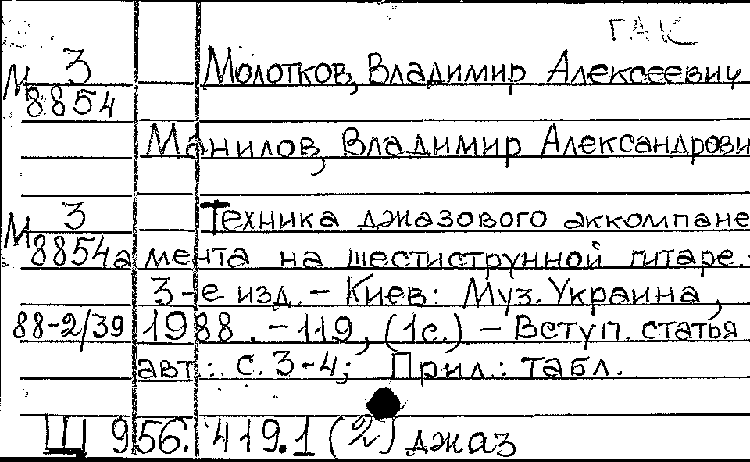 ГАК
М 3 Молотков, Владимир Алексеевич
8854
Манилов, Владимир Александрови
М 3 Техника джазового аккомпане-
8854а мента на шестиструнной гитаре.-
3-е изд. - Киев: Муз. Украина,
88-2/39 1988. - 119, (1с.) - Вступ. статья
авт.: с. 3-4; Прил.: табл.
Щ 956.419.1 (2) джаз